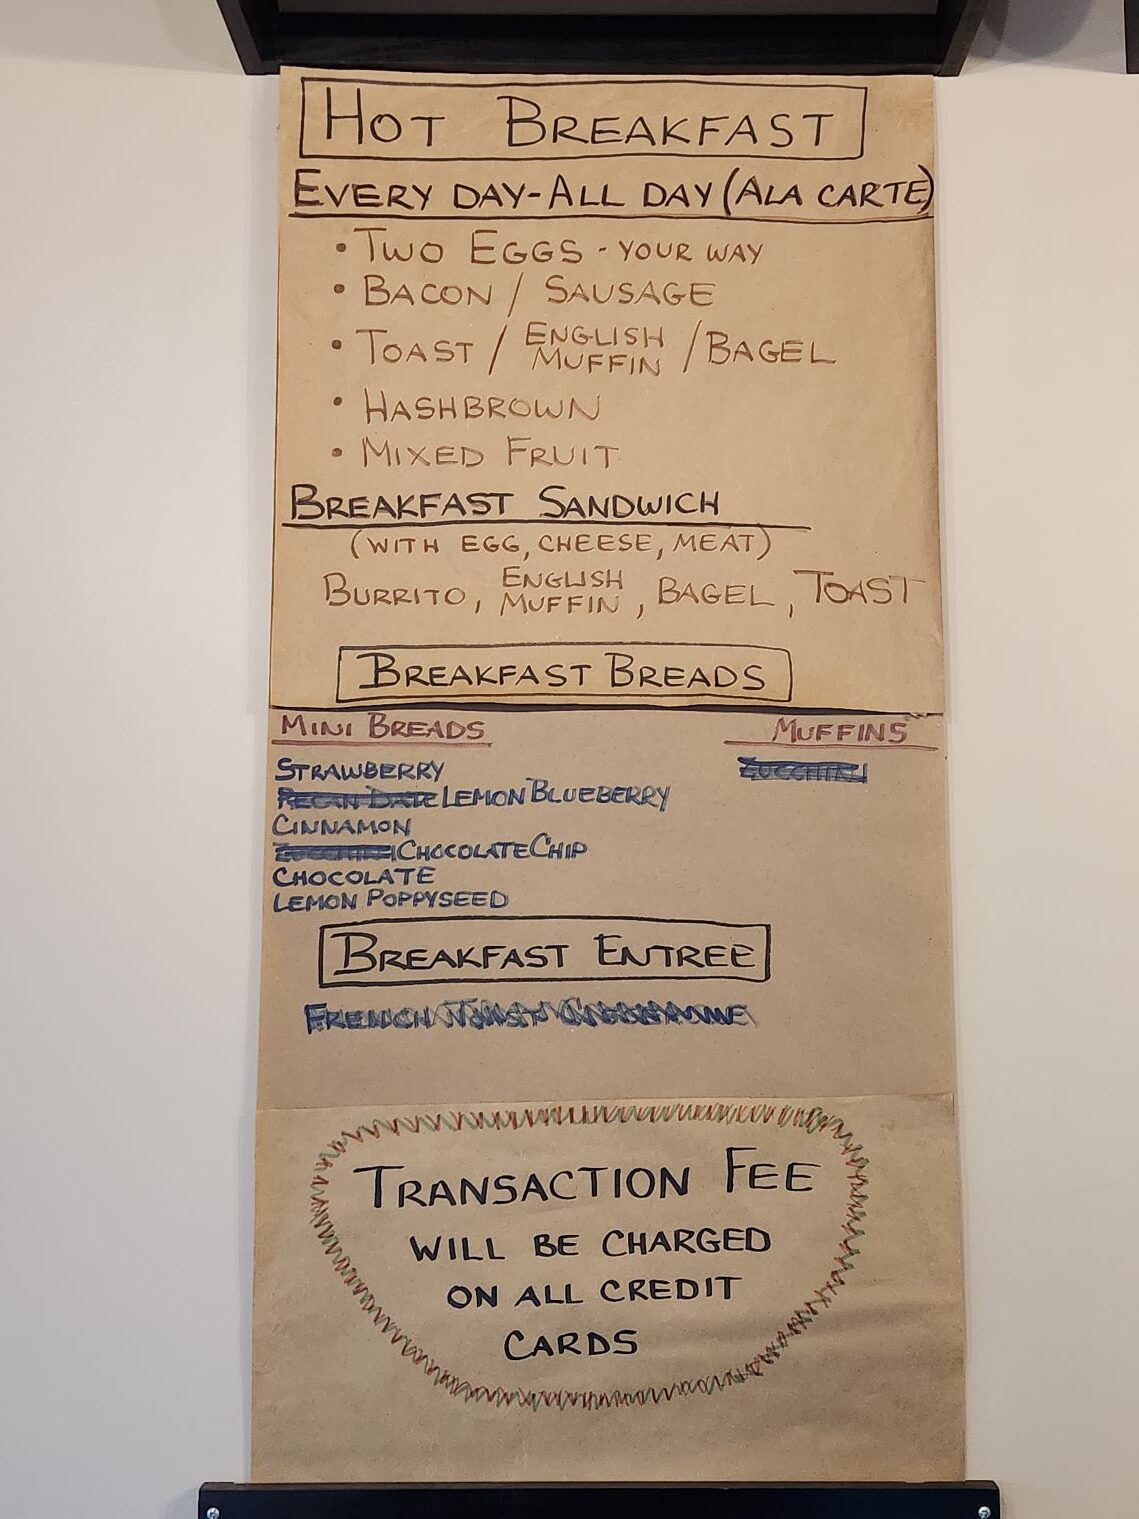 HOT BREAKFAST
EVERY DAY-ALL DAY (ALA CARTE)
• TWO EGGS - YOUR WAY
• BACON / SAUSAGE
• TOAST / ENGLISH MUFFIN / BAGEL
• HASHBROWN
• MIXED FRUIT
BREAKFAST SANDWICH
(WITH EGG, CHEESE, MEAT)
BURRITO, ENGLISH MUFFIN, BAGEL, TOAST
BREAKFAST BREADS
MINI BREADS
STRAWBERRY
PECAN DATE LEMON BLUEBERRY
CINNAMON
ZUCCHINI CHOCOLATE CHIP
CHOCOLATE
LEMON POPPYSEED
MUFFINS
ZUCCHINI
BREAKFAST ENTREE
FRENCH TOAST
TRANSACTION FEE
WILL BE CHARGED
ON ALL CREDIT
CARDS